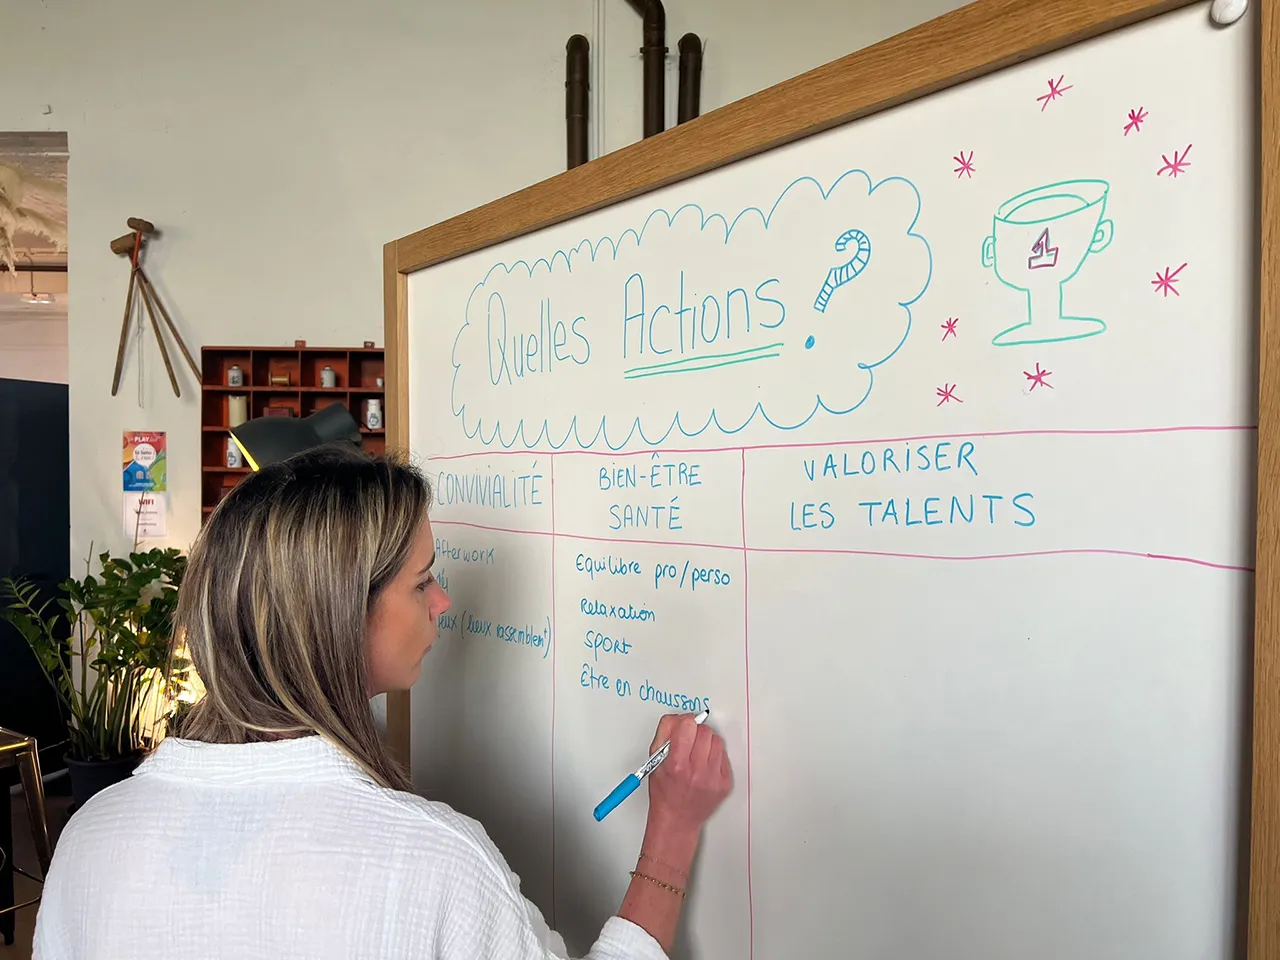 Quelles Actions ?
1
CONVIVIALITÉ
BIEN-ÊTRE
SANTÉ
VALORISER
LES TALENTS
Afterwork
jeux (lieux rassemblent)
Equilibre pro/perso
Relaxation
SPORt
Être en chaussons
PLAY
WIFI